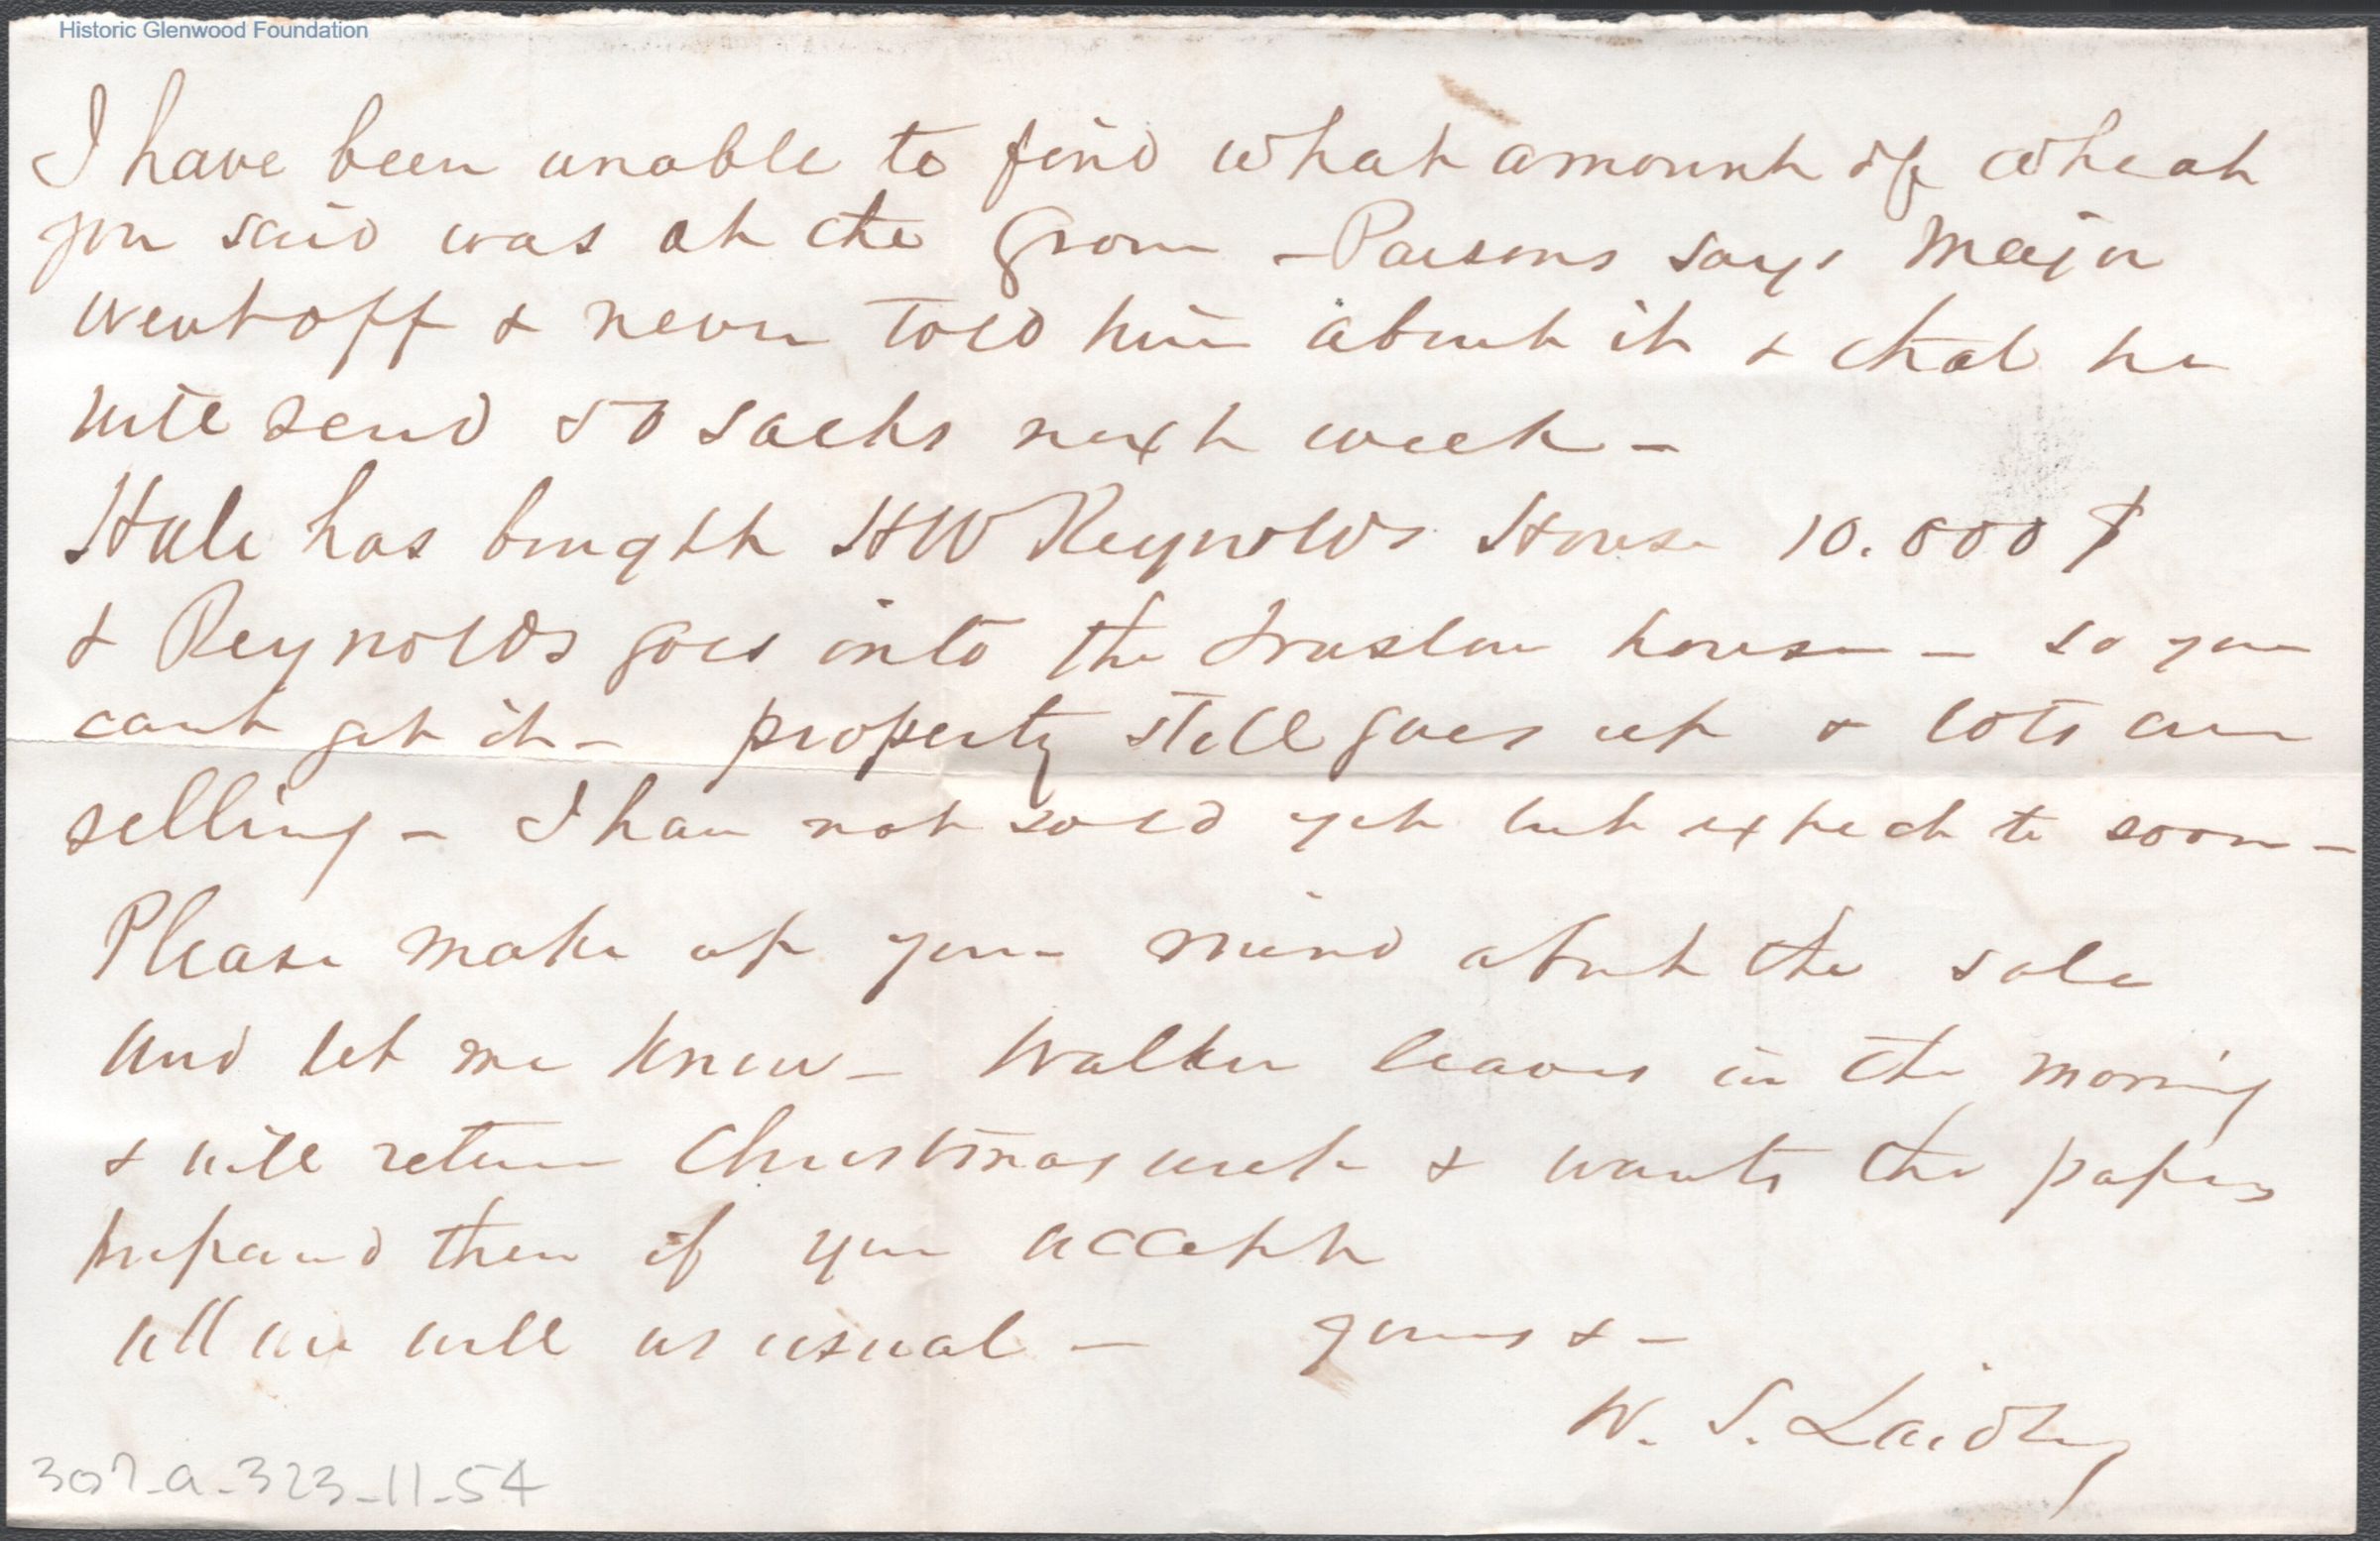 Historic Glenwood Foundation
I have been unable to find what amount of wheat
you said was at the Grove - Parsons says Major
went off & never told him about it & that he
will send 50 sacks next week -
Hale has bought HW Reynolds House 10.000 $
& Reynolds goes into the Truslow house - so you
cant get it - property still goes up & lots are
selling - I have not sold yet but expect to soon -
Please make up your mind about the sale
and let me know - Walker leaves in the morning
& will return Christmas week & wants the papers
prepared then if you accept
All are well as usual - yours & -
W. S. Laidley
307-a-323-11-54